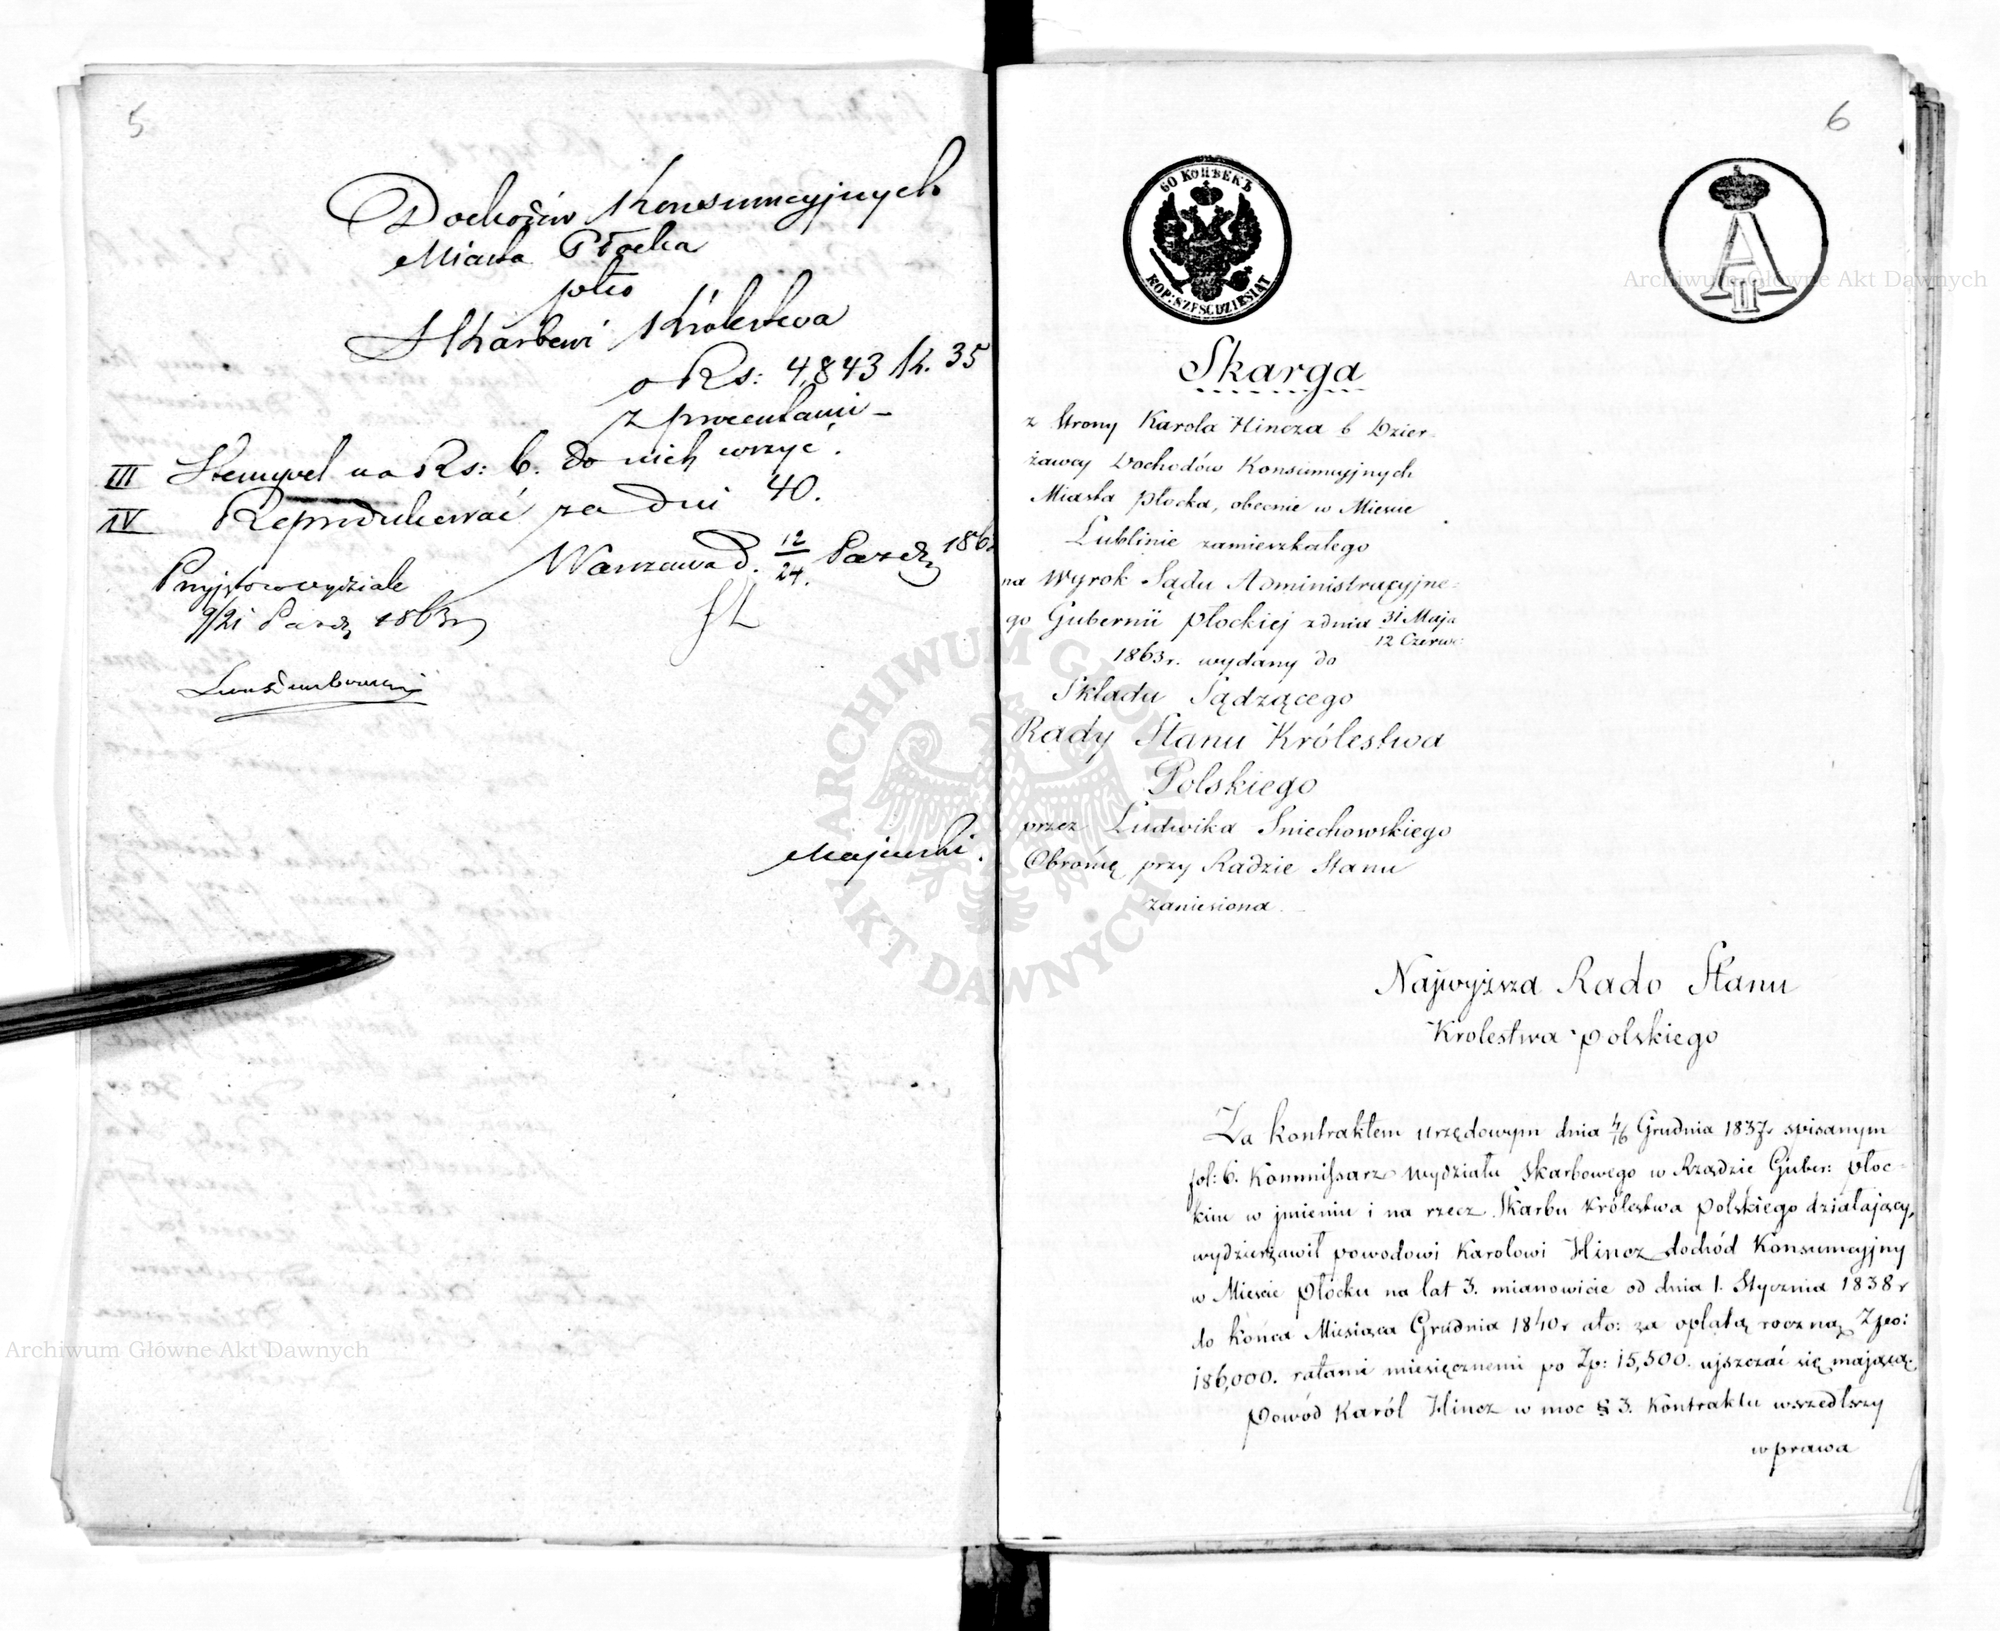 5
Dochodów Konsumcyjnych
Miasta Płocka
pko
Skarbowi Królestwa
o Rs: 4,843 k. 35
z procentami –
III Stempel na Rs: 6. do nich wszyć.
IV Reprodukować za dni 40.
Warszawa d. 12/24. Paźdz 186
Przyjęto w wydziale
9/21 Paźdz 1863r
Majewski.
6
60 КОПѢЕКЪ
KOP: SZEŚĆDZIESIĄT
A II
Skarga
z Strony Karola Hincza b Dzier-
żawcy Dochodów Konsumcyjnych
Miasta Płocka, obecnie w Mieście
Lublinie zamieszkałego
na Wyrok Sądu Administracyjne-
go Gubernii Płockiej z dnia 31 Maja / 12 Czerwc:
1863r. wydany do
Składu Sądzącego
Rady Stanu Królestwa
Polskiego
przez Ludwika Sniechowskiego
Obrońcę przy Radzie Stanu
zaniesiona. –
Najwyższa Rado Stanu
Krolestwa Polskiego
Za kontraktem urzędowym dnia 4/16 Grudnia 1837r spisanym
fol: 6. Kommissarz Wydziału Skarbowego w Rządzie Guber: Płoc-
kim w jmieniu i na rzecz Skarbu Królestwa Polskiego działający,
wydzierżawił powodowi Karolowi Hincz dochód Konsumcyjny
w Mieście Płocku na lat 3. mianowicie od dnia 1. Stycznia 1838r
do końca Miesiąca Grudnia 1840r ato: za opłatą roczną Zpo:
186,000. ratami miesięcznemi po Zp: 15,500. ujszczać się mającą.
Powód Karól Hincz w moc § 3. Kontraktu wszedłszy
w prawa
Archiwum Główne Akt Dawnych
Archiwum Główne Akt Dawnych
ARCHIWUM GŁÓWNE AKT DAWNYCH